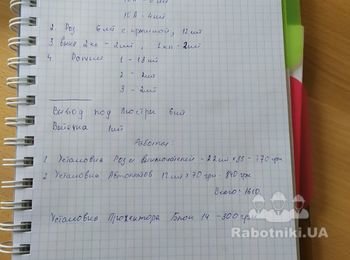 10А - 4шт
2 Роз 6шт с крышкой, 12шт
3 выкл 2кл - 2шт, 1кл - 2шт
4 Рамки 1 - 13шт
2 - 2шт
3 - 2шт
Вывод под Люстры 6шт
Вытяжка 1шт
Работа:
1 Установка Роз и Выключателей - 22шт × 35 - 770 грн
2 Установка Автоматов 12шт × 70 - 840 грн
Всего: 1610
Установка Прожектора 14 - 300 грн
Rabotniki.UA